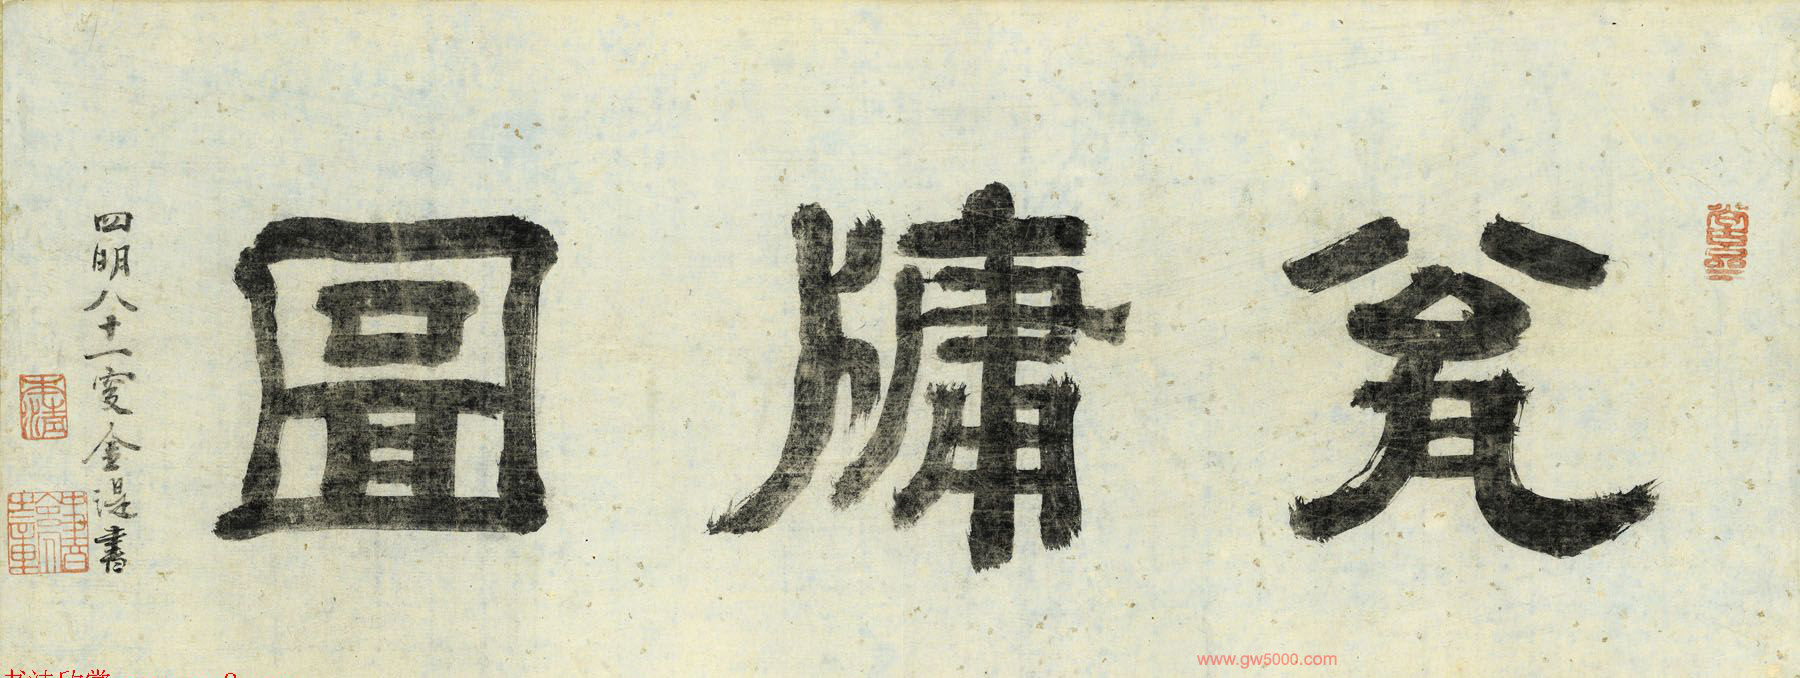 瓮牖圖
四明八十一叟金湜書
本清
www.gw5000.com
书法欣赏